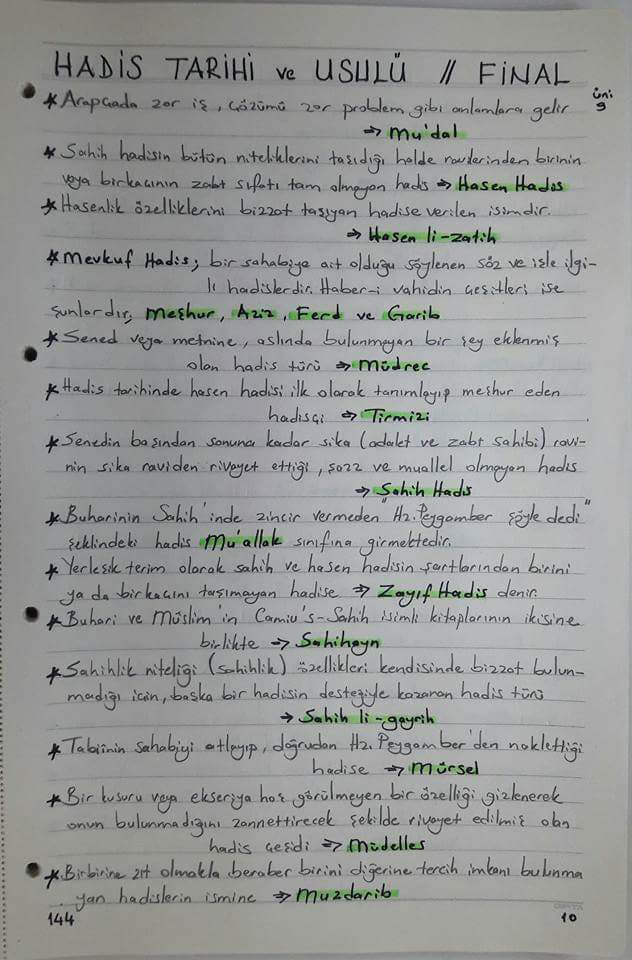 HADİS TARİHİ ve USULÜ // FİNAL
üni 9
* Arapçada zor iş, çözümü zor problem gibi anlamlara gelir
⇒ Mu'dal
* Sahih hadisin bütün niteliklerini taşıdığı halde ravilerinden birinin
veya birkaçının zabt sıfatı tam olmayan hadis ⇒ Hasen Hadis
* Hasenlik özelliklerini bizzat taşıyan hadise verilen isimdir.
⇒ Hasen li-zatih
* Mevkuf Hadis; bir sahabiye ait olduğu söylenen söz ve işle ilgi-
li hadislerdir. Haber-i vahidin çeşitleri ise
şunlardır; Meşhur, Aziz, Ferd ve Garib
* Sened veya metnine, aslında bulunmayan bir şey eklenmiş
olan hadis türü ⇒ Müdrec
* Hadis tarihinde hasen hadisi ilk olarak tanımlayıp meşhur eden
hadisçi ⇒ Tirmizi
* Senedin başından sonuna kadar sika (adalet ve zabt sahibi) ravi-
nin sika raviden rivayet ettiği, şazz ve muallel olmayan hadis
⇒ Sahih Hadis
* Buharinin Sahih'inde zincir vermeden "Hz. Peygamber şöyle dedi"
şeklindeki hadis Mu'allak sınıfına girmektedir.
* Yerleşik terim olarak sahih ve hasen hadisin şartlarından birini
ya da birkaçını taşımayan hadise ⇒ Zayıf Hadis denir.
* Buhari ve Müslim'in Camiu's-Sahih isimli kitaplarının ikisine
birlikte ⇒ Sahihayn
* Sahihlik niteliği (sahihlik) özellikleri kendisinde bizzat bulun-
madığı için, başka bir hadisin desteğiyle kazanan hadis türü
⇒ Sahih li-gayrih
* Tabiinin sahabiyi atlayıp, doğrudan Hz. Peygamber'den naklettiği
hadise ⇒ Mürsel
* Bir kusuru veya ekseriya hoş görülmeyen bir özelliği gizlenerek
onun bulunmadığını zannettirecek şekilde rivayet edilmiş olan
hadis çeşidi ⇒ Müdelles
* Birbirine zıt olmakla beraber birini diğerine tercih imkanı bulunma
yan hadislerin ismine ⇒ Muzdarib
144
10